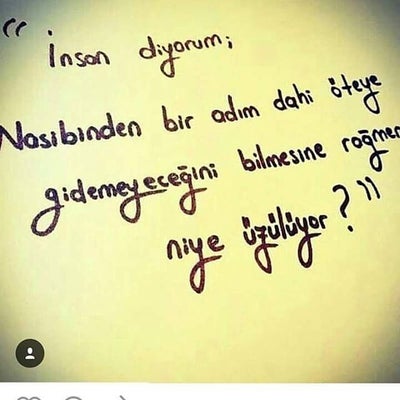 “ İnsan diyorum;
Nasibinden bir adım dahi öteye
gidemeyeceğini bilmesine rağmen
niye üzülüyor? ”